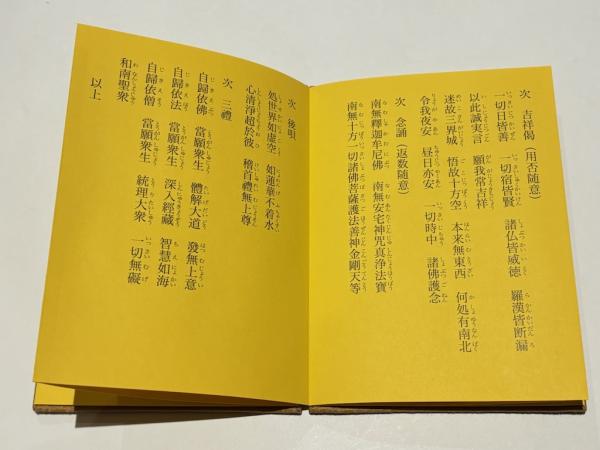 次 吉祥偈（用否随意）
一切日皆善 一切宿皆賢 諸仏皆威徳 羅漢皆断漏
以此誠実言 願我常吉祥
迷故三界城 悟故十方空 本来無東西 何処有南北
令我夜安 昼日亦安 一切時中 諸佛護念
次 念誦（返数随意）
南無釋迦牟尼佛 南無安宅神咒真浄法寶
南無十方一切諸佛菩薩護法善神金剛天等
次 後唄
処世界如虚空 如蓮華不着水
心清浄超於彼 稽首禮無上尊
次 三禮
自歸依佛 當願衆生 體解大道 發無上意
自歸依法 當願衆生 深入經藏 智慧如海
自歸依僧 當願衆生 統理大衆 一切無礙
和南聖衆
以上